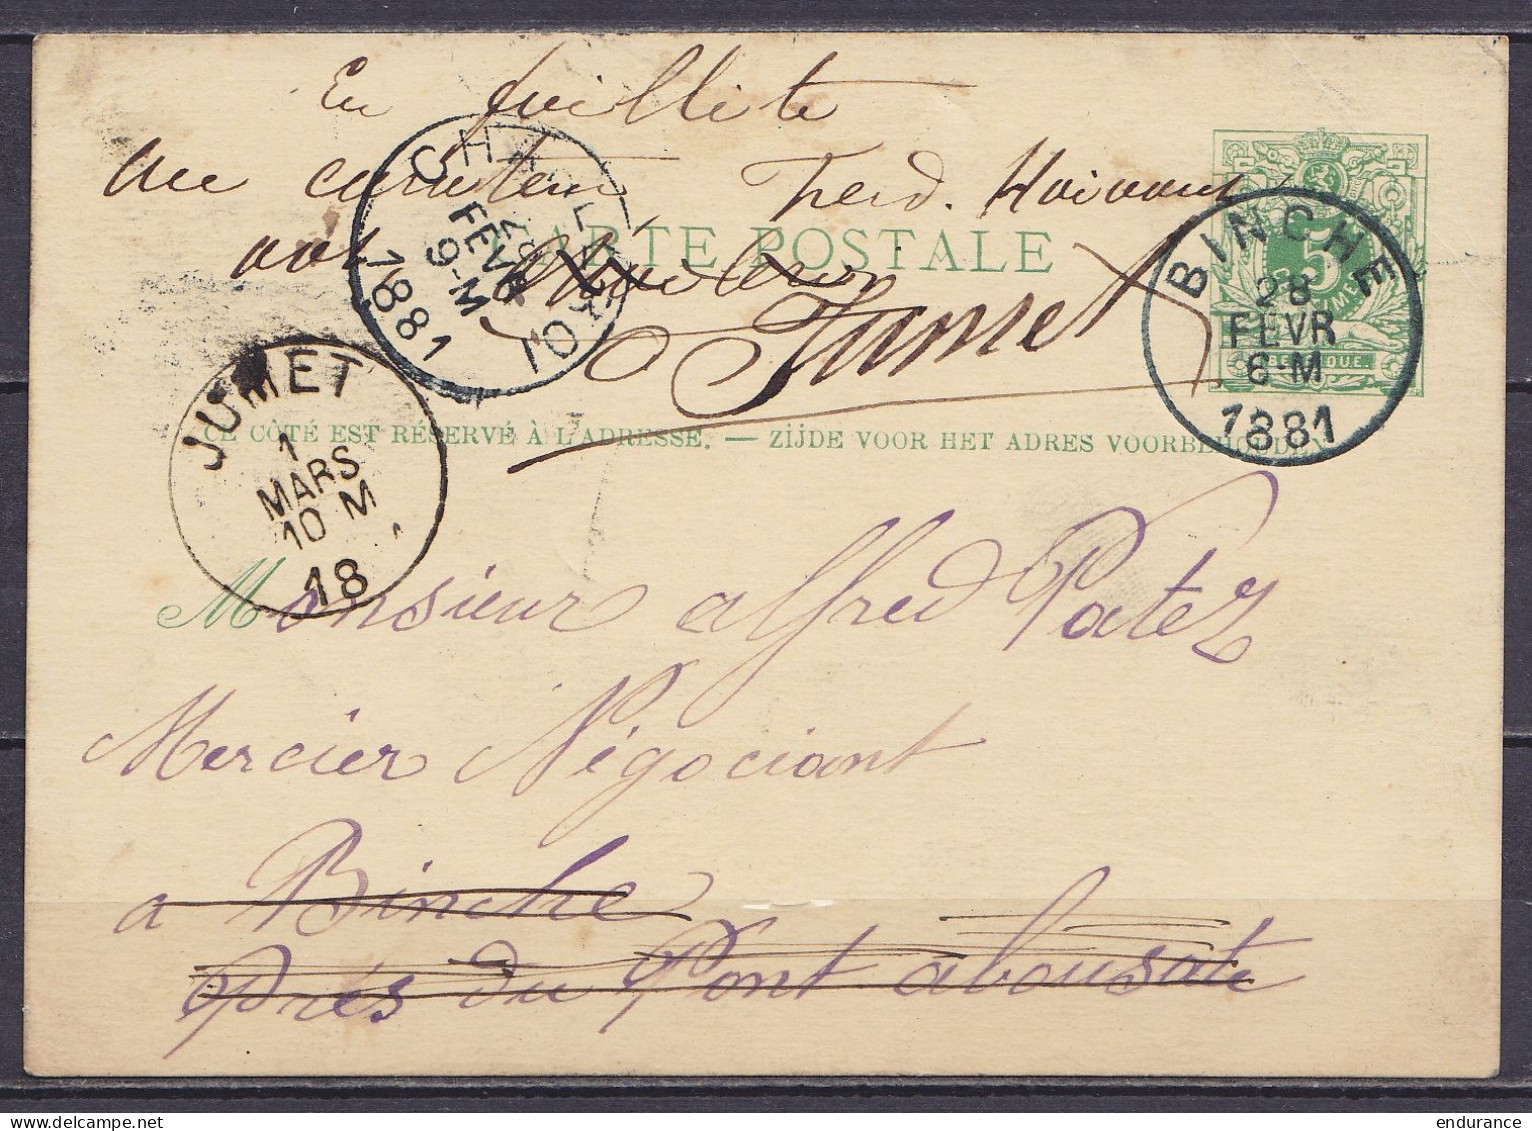 En faillite
Au curateur Ferd. Hoivaux
CARTE POSTALE
Charleroi
Jumet
CHARLEROI
FEVR
9-M
1881
BINCHE
28
FEVR
6-M
1881
5
BELGIQUE
JUMET
1
MARS
10 M
18
CE CÔTÉ EST RÉSERVÉ À L'ADRESSE. — ZIJDE VOOR HET ADRES VOORBEHOUDEN
Monsieur alfred Patez
Mercier Négociant
a Binche
Près du Pont
endurance